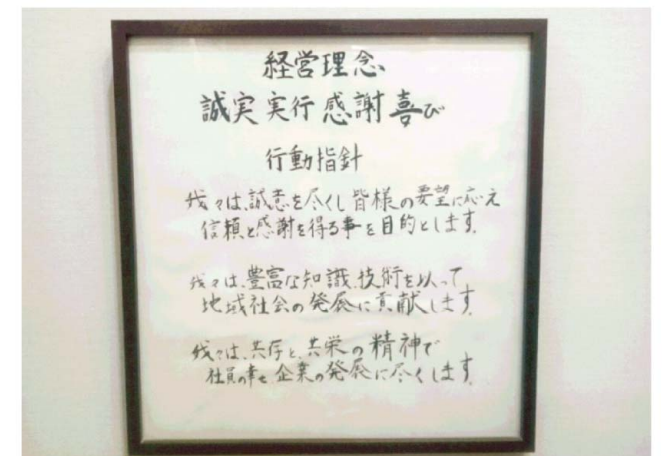 経営理念
誠実実行感謝喜び
行動指針
我々は、誠意を尽くし皆様の要望に応え
信頼と感謝を得る事を目的とします。
我々は、豊富な知識、技術を以って
地域社会の発展に貢献します。
我々は、共存と、共栄の精神で
社員の幸せ、企業の発展に尽くします。